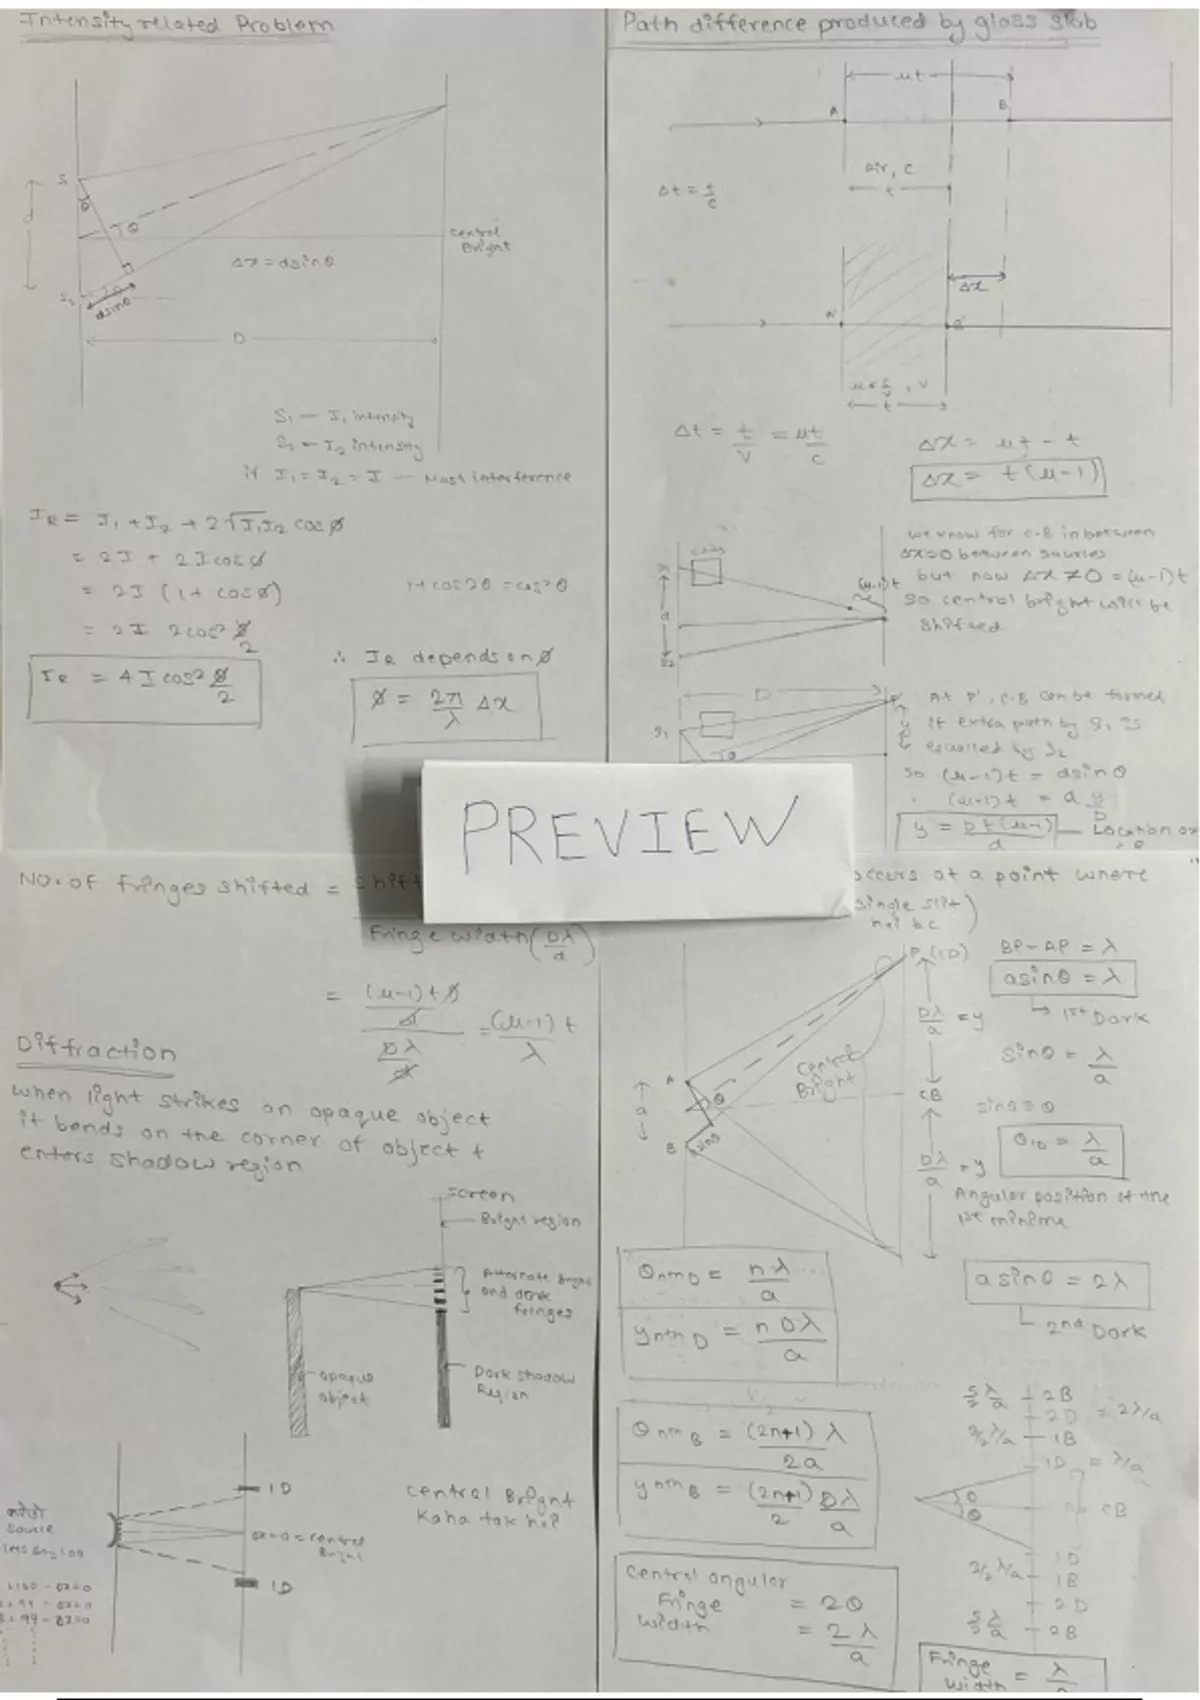 Intensity related Problem
S₁
θ
d
θ
S₂
dsinθ
Δx = dsinθ
central
Bright
D
S₁ — I₁ intensity
S₂ — I₂ intensity
if I₁ = I₂ = I — Most interference
I_R = I₁ + I₂ + 2√I₁I₂ cos ø
= 2I + 2I cos ø
= 2I (1 + cos ø)
1 + cos2θ = cos²θ
= 2I 2cos² ø/2
I_R = 4I cos² ø/2
∴ I_R depends on ø
ø = 2π/λ Δx
Path difference produced by glass slab
μt
A
B
Air, C
t
Δt = t/c
Δx
A'
B'
μ = c/v , V
t
Δt = t/V = μt/C
Δx = μt - t
Δx = t(μ-1)
we know for C.B in between
Δx=0 between sources
but now Δx ≠ 0 = (μ-1)t
so central bright will be
shifted
(μ-1)t
S₁
d
S₂
D
P'
At P', C.B can be formed
if extra path by S₁ is
equalled by S₂
S₁
θ
y
so (μ-1)t = dsinθ
(μ-1)t = d y/D
y = Dt(μ-1)/d — Location of
CB
PREVIEW
No. of fringes shifted = Shift
Fringe width (Dλ/d)
= (μ-1)t D/d / Dλ/d = (μ-1)t/λ
Diffraction
when light strikes an opaque object
it bends on the corner of object +
enters shadow region
screen
Bright region
Alternate bright
and dark
fringes
opaque
object
Dark shadow
Region
1D
Δx=0 = central
Bright
1D
source
central Bright
Kaha tak hai?
occurs at a point where
(single slit
hai bc)
P (1D)
BP - AP = λ
asinθ = λ
↳ 1st Dark
Dλ/a = y
sinθ = λ/a
central
Bright
A
a
θ
B
asinθ
CB
sinθ ≈ θ
θ₁D = λ/a
Dλ/a = y
Angular position of the
1st minima
θnthD = nλ/a
ynthD = nDλ/a
asinθ = 2λ
↳ 2nd Dark
θnthB = (2n+1)λ/2a
ynthB = (2n+1)/2 Dλ/a
5/2 λ/a 2B
2D = 2λ/a
3/2 λ/a 1B
1D = λ/a
θ
θ
0
CB
1D
3/2 λ/a 1B
2D
5/2 λ/a 2B
Central angular
Fringe = 2θ
width = 2λ/a
Fringe
width = λ/a